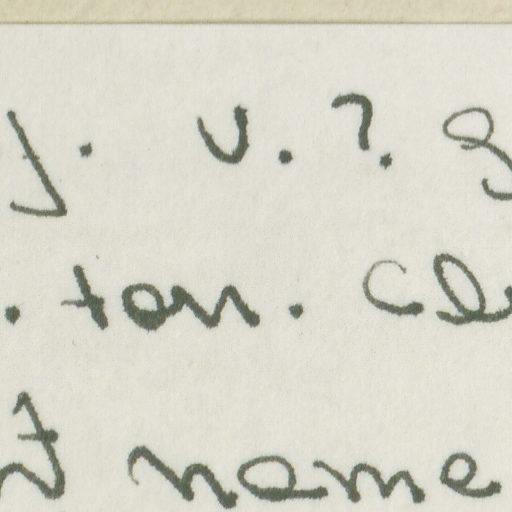 y. v. ?. g
. ton. Cl
t name